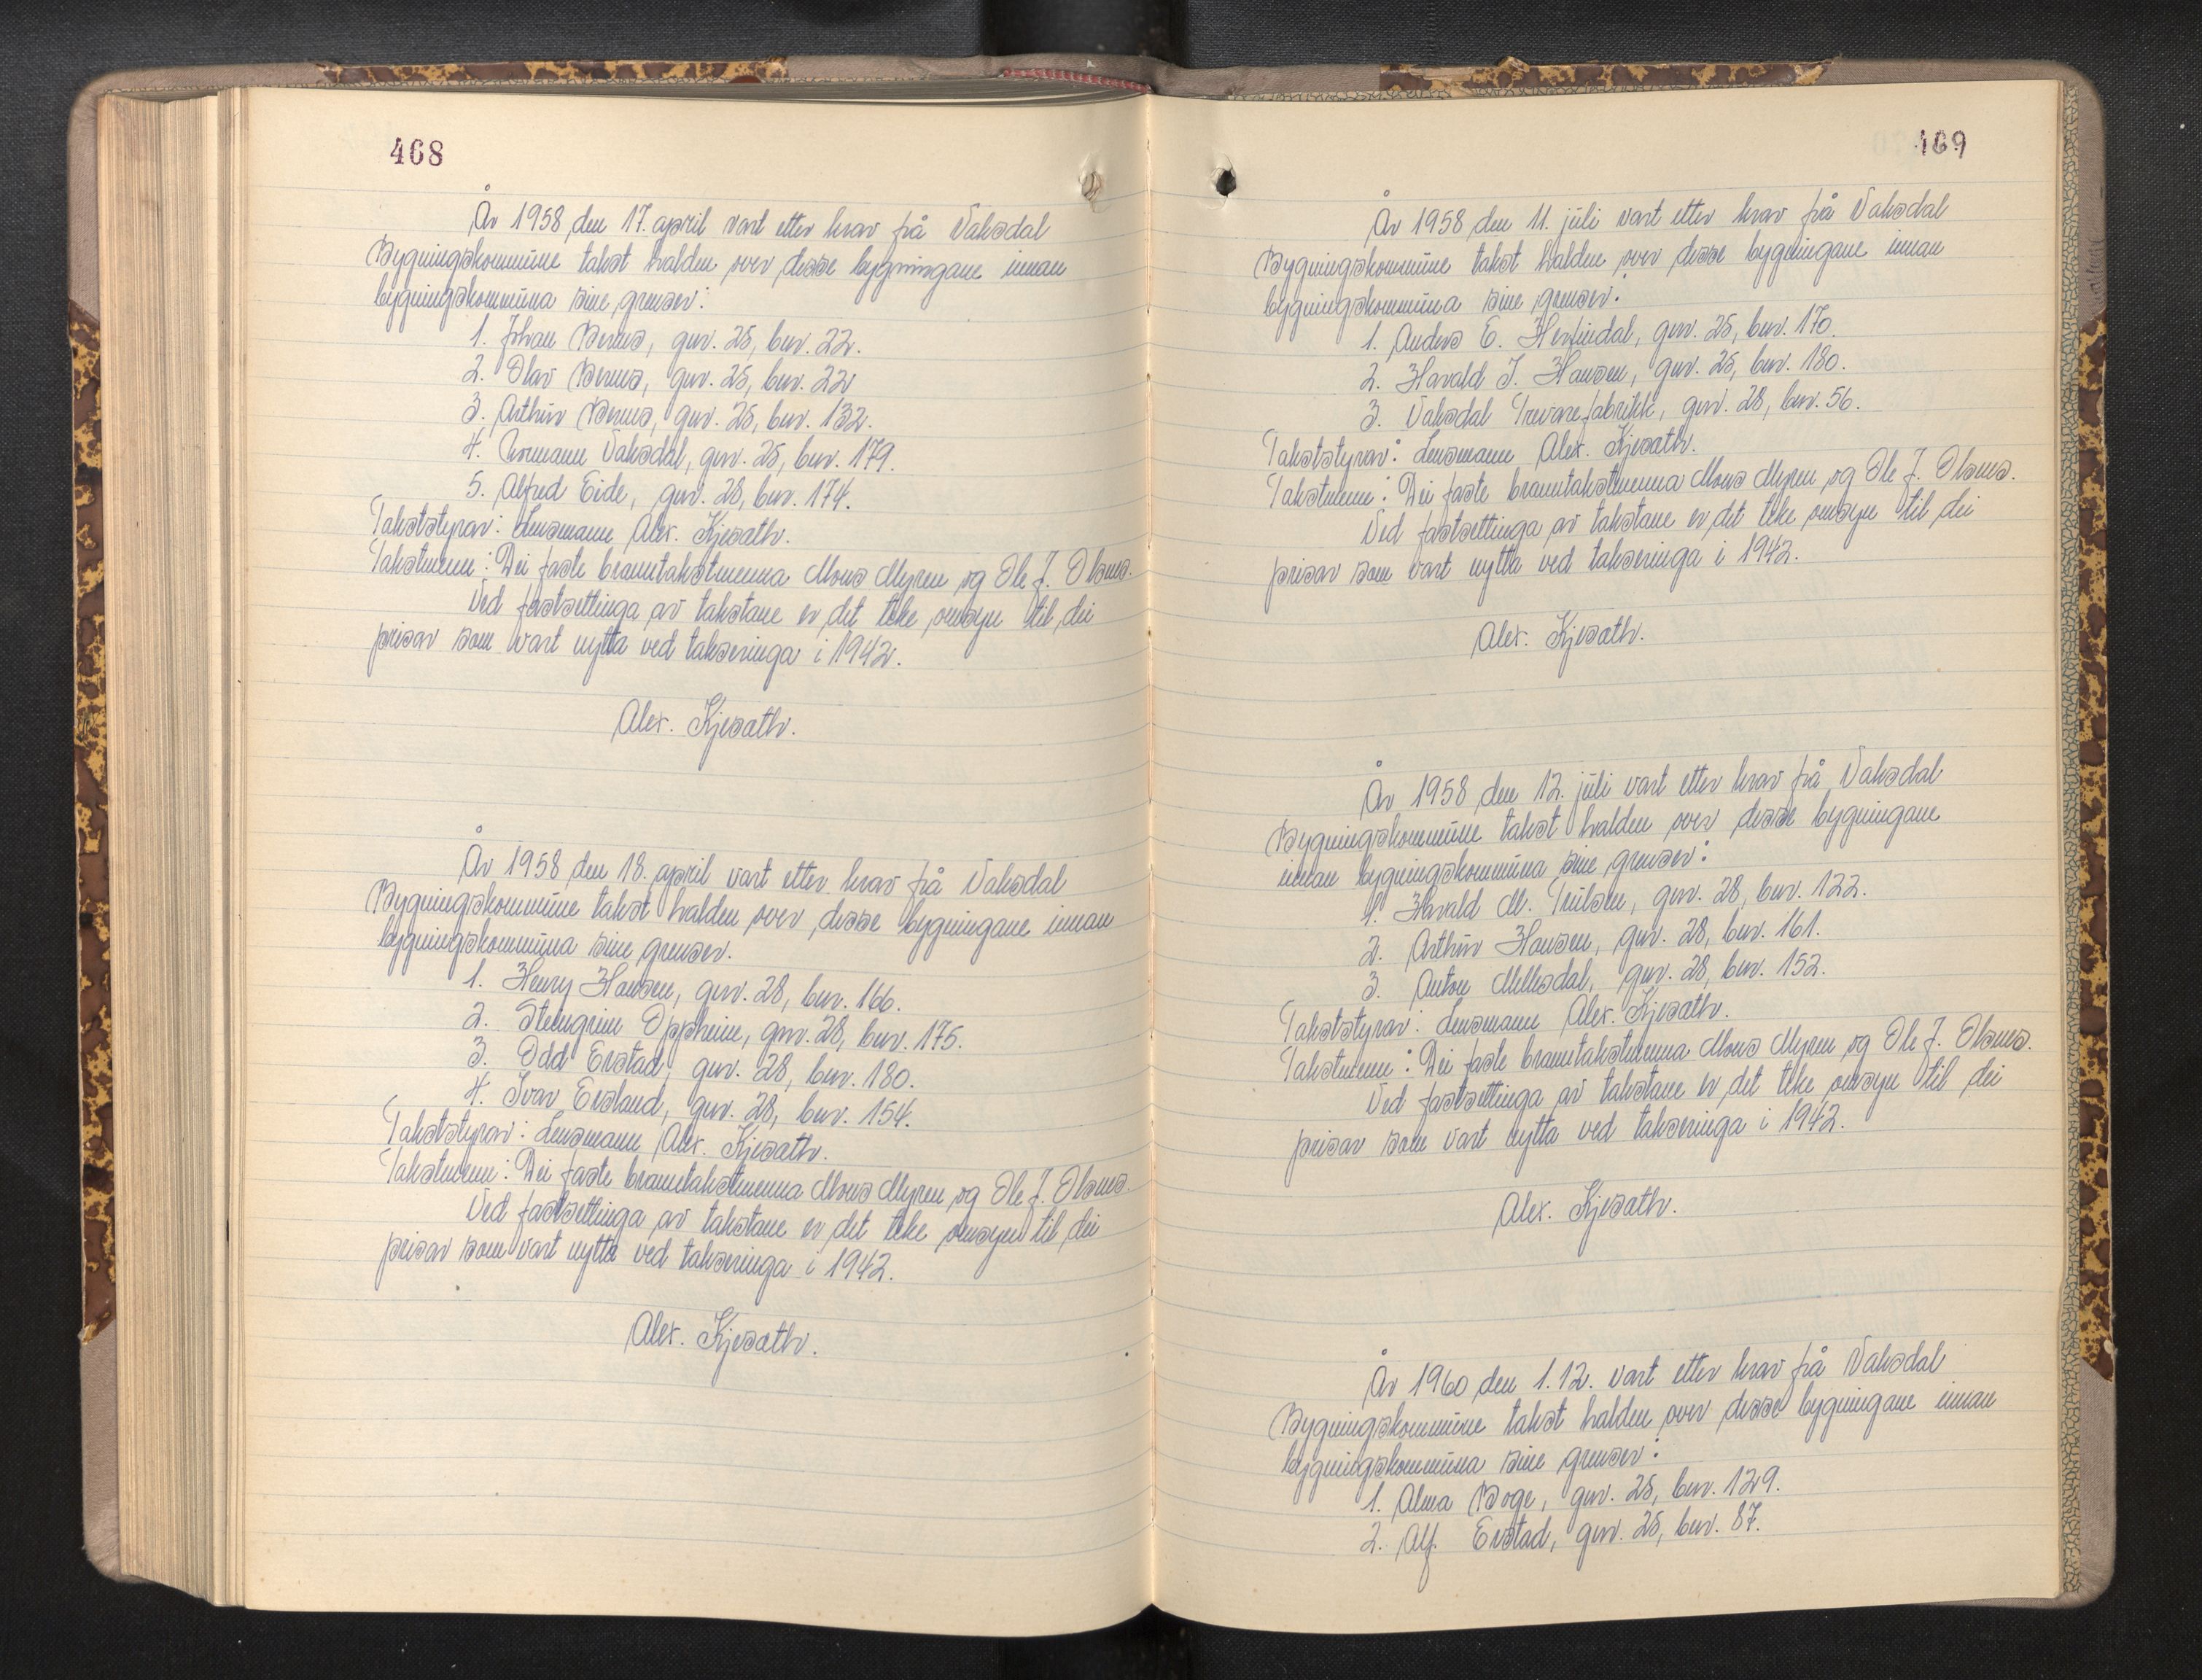 468
År 1958 den 17. april vart etter krav frå Vaksdal
Bygningskommune takst halden over desse bygningane innan
bygningskommuna sine grenser:
1. Johan Bernes, gnr. 25, bnr. 22.
2. Olav Bernes, gnr. 25, bnr. 22
3. Arthur Bernes, gnr. 25, bnr. 132.
4. Normann Vaksdal, gnr. 25, bnr. 179.
5. Alfred Eide, gnr. 28, bnr. 174.
Takststyrar: Lensmann Alex. Kjesath.
Takstmenn: Dei faste branntakstmenna Mons Myren og Ole J. Olsnes.
Ved fastsettinga av takstane er det teke omsyn til dei
prisar som vart nytta ved takseringa i 1942.
Alex. Kjesath.
År 1958 den 18. april vart etter krav frå Vaksdal
Bygningskommune takst halden over desse bygningane innan
bygningskommuna sine grenser.
1. Henry Hansen, gnr. 28, bnr. 166.
2. Steingrim Oppheim, gnr. 28, bnr. 175.
3. Odd Erstad, gnr. 28, bnr. 180.
4. Ivar Ersland, gnr. 28, bnr. 154.
Takststyrar: Lensmann Alex. Kjesath.
Takstmenn: Dei faste branntakstmenna Mons Myren og Ole J. Olsnes.
Ved fastsettinga av takstane er det teke omsyn til dei
prisar som vart nytta ved takseringa i 1942.
Alex. Kjesath.
469
År 1958 den 11. juli vart etter krav frå Vaksdal
Bygningskommune takst halden over desse bygningane innan
bygningskommuna sine grenser:
1. Anders E. Herfindal, gnr. 25, bnr. 170.
2. Harald J. Hansen, gnr. 25, bnr. 180.
3. Vaksdal Trevarefabrikk, gnr. 28, bnr. 56.
Takststyrar: Lensmann Alex. Kjesath.
Takstmenn: Dei faste branntakstmenna Mons Myren og Ole J. Olsnes.
Ved fastsettinga av takstane er det teke omsyn til dei
prisar som vart nytta ved takseringa i 1942.
Alex. Kjesath.
År 1958 den 12. juli vart etter krav frå Vaksdal
Bygningskommune takst halden over desse bygningane
innan bygningskommuna sine grenser:
1. Harald M. Trulsen, gnr. 28, bnr. 122.
2. Arthur Hansen, gnr. 28, bnr. 161.
3. Anton Mellesdal, gnr. 28, bnr. 152.
Takststyrar: Lensmann Alex. Kjesath.
Takstmenn: Dei faste branntakstmenna Mons Myren og Ole J. Olsnes.
Ved fastsettinga av takstane er det teke omsyn til dei
prisar som vart nytta ved takseringa i 1942.
Alex. Kjesath.
År 1960 den 1.12. vart etter krav frå Vaksdal
Bygningskommune takst halden over desse bygningane innan
bygningskommuna sine grenser:
1. Alma Boge, gnr. 25, bnr. 129.
2. Alf Erstad, gnr. 25, bnr. 87.